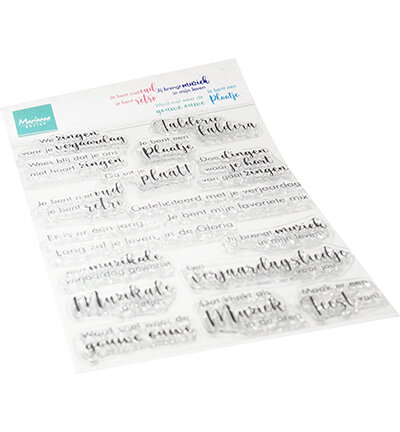 Marianne
DESIGN
Je bent niet oud
je bent retro
Jij brengt muziek
in mijn leven
Word snel weer de
gouwe ouwe
Je bent een
Plaatje
We zingen
voor je verjaardag
Falderie
faldera
Wees blij dat je ons
niet hoort zingen
Je bent een
Plaatje
Ga uit je
plaat!
Doe dingen
waar je hart
van gaat zingen
Je bent niet oud
je bent retro
Gefeliciteerd met je verjaardag
Je bent mijn favoriete mix
Er is er één jarig,
Lang zal je leven, in de Gloria
Jij brengt muziek
in mijn leven
Een muzikale
verjaardag gewenst
Een
verjaardagsliedje
voor jou!
Muzikale
groetjes
Dat klinkt als
Muziek
in de oren
Maak er een
feest van!
Word snel weer de
gouwe ouwe